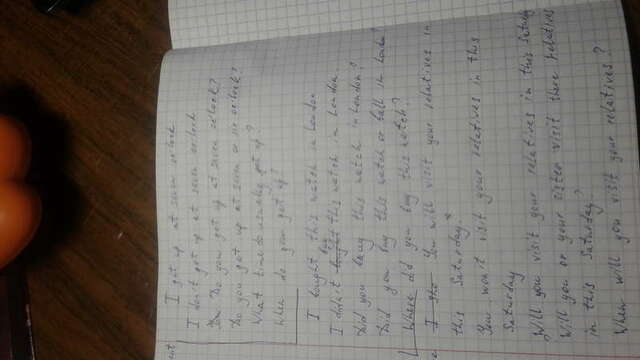 I get up at seven oclock
I don't get up at seven oclock
Do you get up at seven oclock?
Do you get up at seven or six oclock?
What time do usualy get up?
When do you get up?
I bought this watch in London
I didn't buy this watch in London
Did you buy this watch in London?
Did you buy this watch or ball in London?
Where did you buy this watch?
You will visit your relatives in
this Saturday
You won't visit your relatives in this
Saturday
Will you visit your relatives in this Saturday
Will you or your sister visit there relatives
in this Saturday?
When will you visit your relatives?